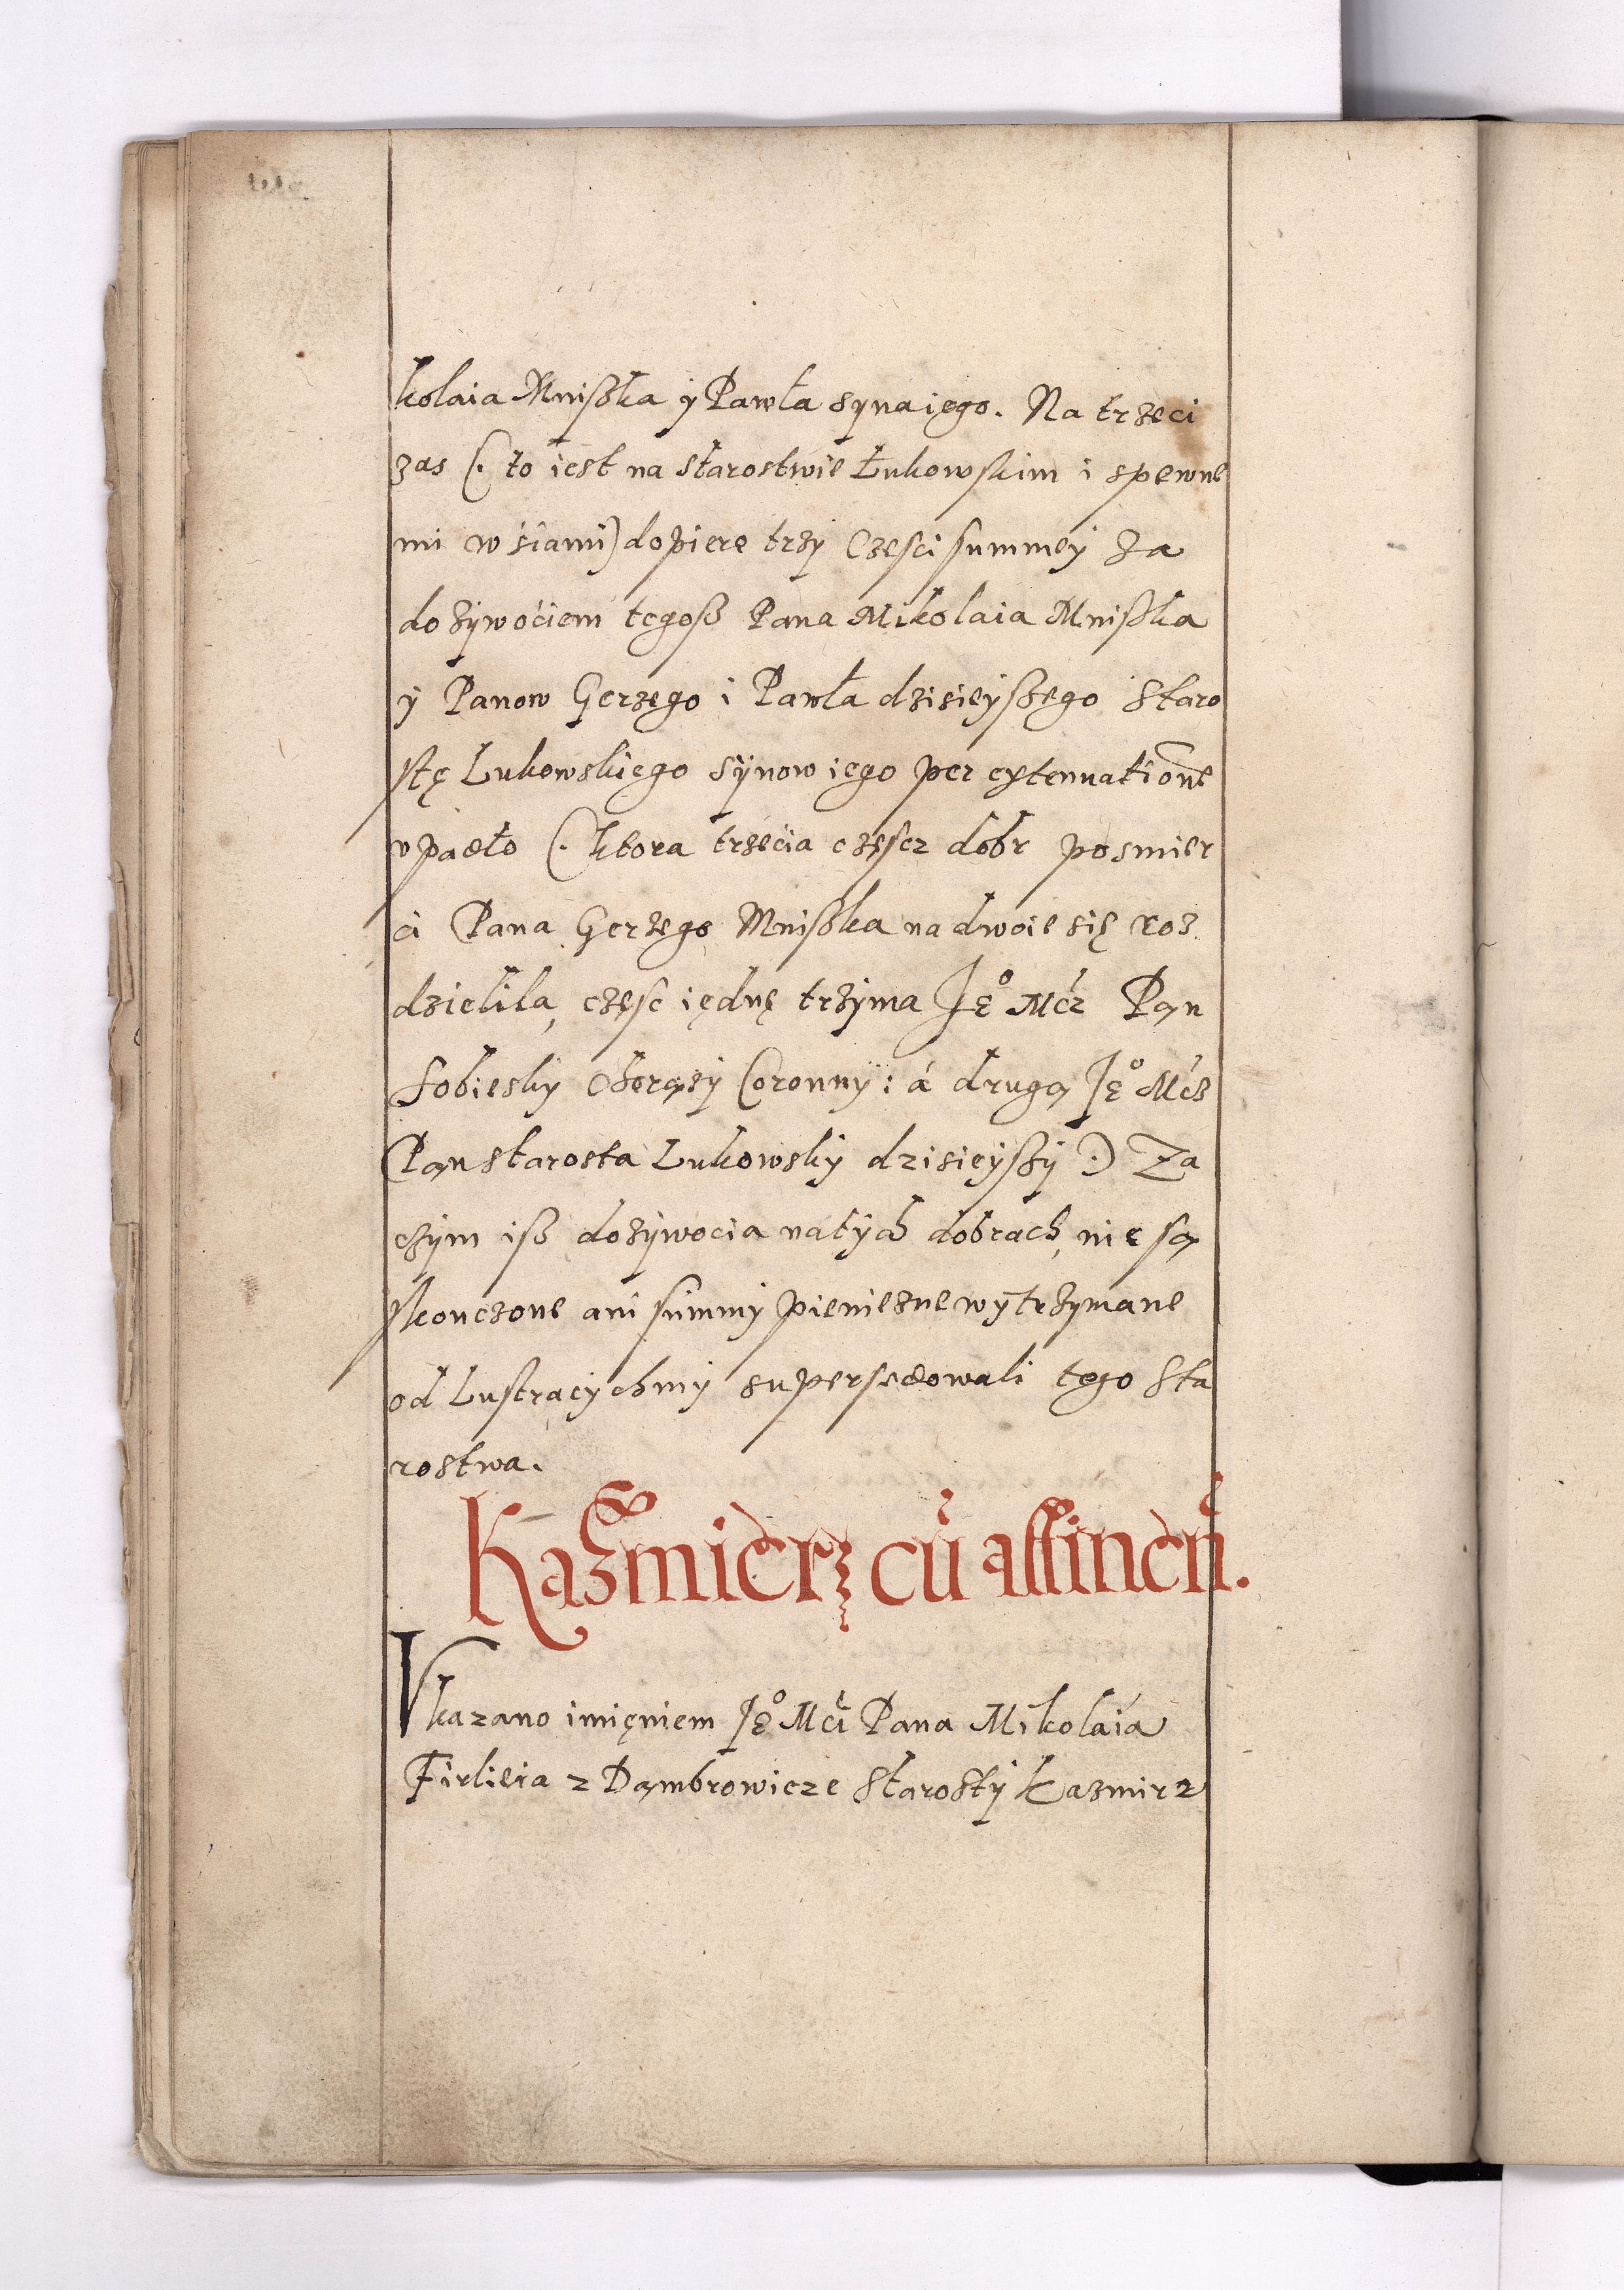 kolaia Mnißka y Pawła syna iego. Na trzeci
zas (. to iest na starostwie Łukowskim i spewne
mi wśiami) dopiere trzy Czesci summey za
dożywoćiem tegoß Pana Mikolaia Mnißka
ÿ Panow Gerzego i Pawła dzisieyßego Staro
stę Lukowskiego sÿnow iego per extenuationē
vpadło (. ktora trzećia częscz dobr posmier
ci Pana Gerzego Mnißka na dwoie się roz
dzielila, częsc iędnę trzÿma Jeº Mćz Pąn
Sobiesky Chorąży Coronny: á drugą Jeº Mćz
Pąn starosta Lukowsky dzisieyßy .) Za
czym iß dożywocia na tych dobrach, nie są
skonczone ani summy pieniezne wytrzymane
od Lustracychmy supersedowali tego Sta
rostwa.
Kazmierz cū attinen̄.
Vkazano imięniem Jeº Mći Pana Mikolaia
Firlieia z Dąmbrowicze Starosty Kazmirz